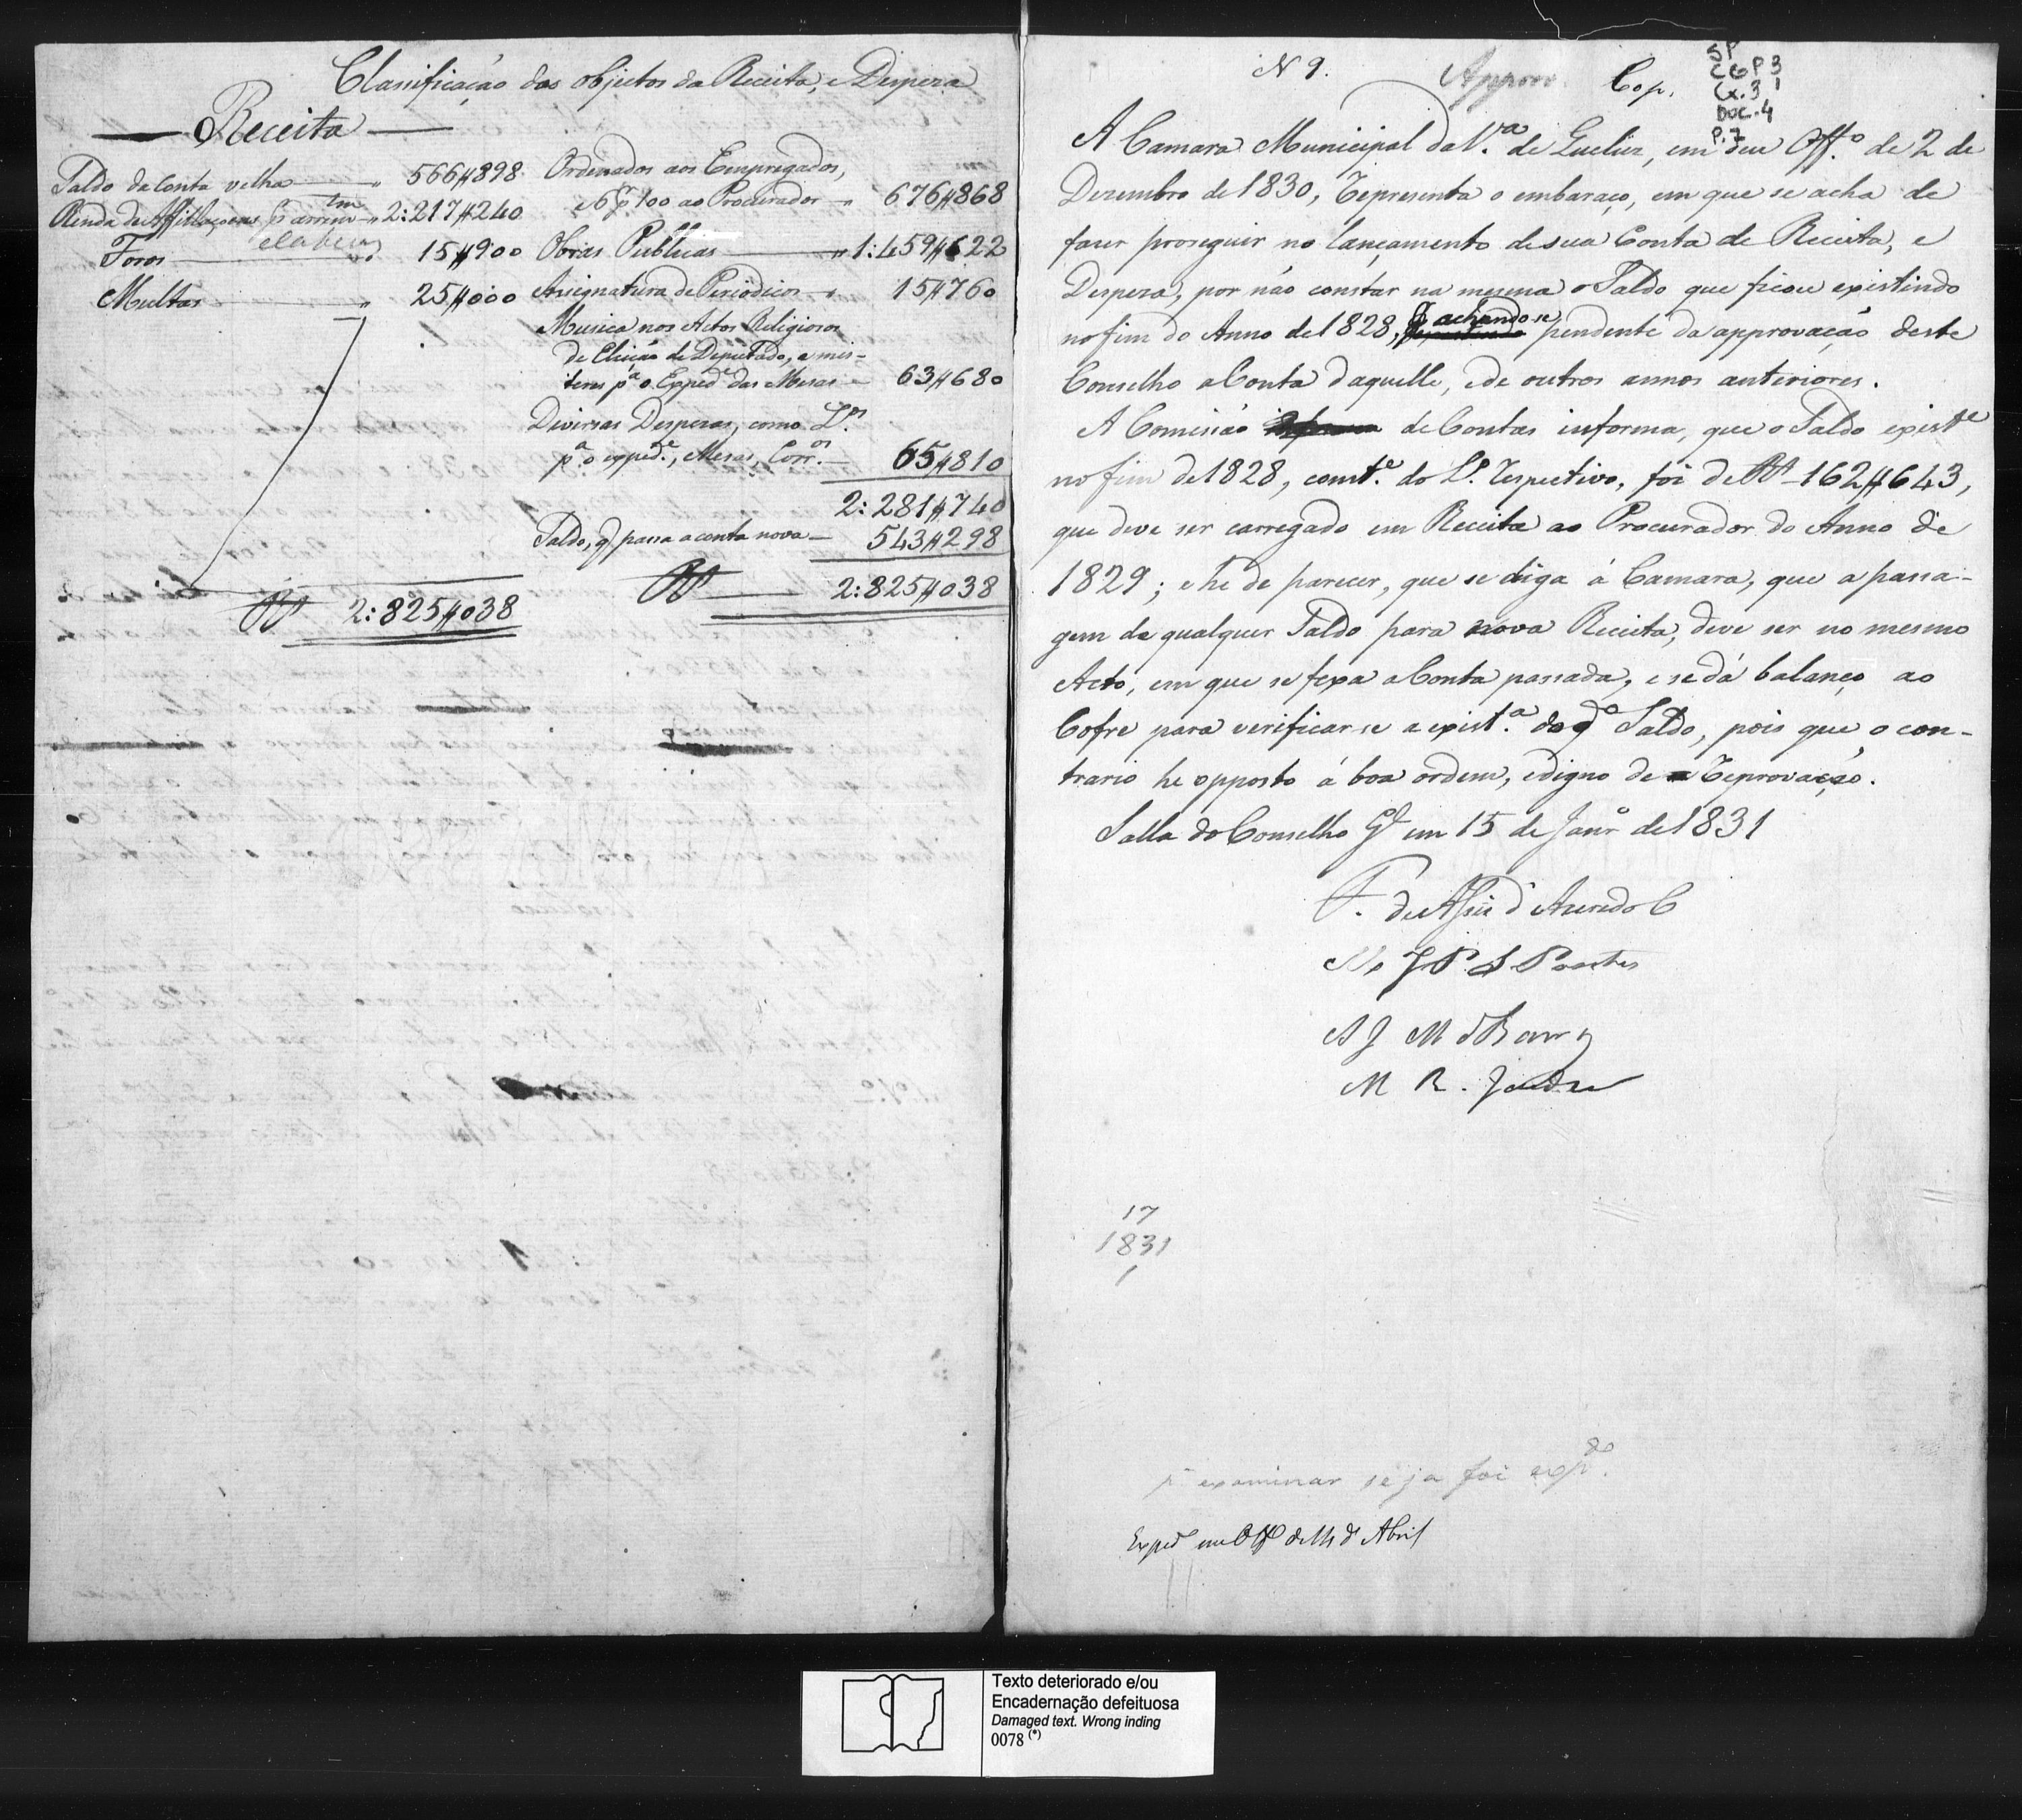 Classificação dos objectos da Receita, e Despeza
Receita
Saldo da Conta velha — " 566$898
Renda das Affillaçoens, p arrem.tm " 2:217$240
e Cabeças
Foros — " 15$900
Multas — " 25$000
R$ 2:825$038
Ordenados aos Empregados,
e 6 p 100 ao Procurador — " 676$868
Obras Publicas — " 1:459$622
Assignatura de Periodicos — " 15$760
Musica nos Actos Religiosos
de Eleição de Deputado, e mis-
teres p.a o Exped.e das Mesas — 63$680
Diversas Despezas, como L.os
p.a o exped.e, Mesas, Corr.os — 65$810
2:281$740
Saldo, q passa a conta nova — 543$298
R$ — 2:825$038
N 9. Approv. Cop.
SP
CGP 3
Cx. 3
DOC. 4
P. 7
A Camara Municipal da V.a de Queluz, em seu Off.o de 2 de
Dezembro de 1830, representa o embaraço, em que se acha de
fazer proseguir no lançamento de sua Conta de Receita, e
Despeza, por não constar na mesma o Saldo que ficou existindo
no fim do Anno de 1828, achando-se pendente da approvação deste
Conselho a Conta daquelle, e de outros annos anteriores.
A Comissão de Contas informa, que o Saldo exist.e
no fim de 1828, const.e do L.o respectivo, foi de R$ — 162$643,
que deve ser carregado em Receita ao Procurador do Anno de
1829; e he de parecer, que se diga á Camara, que a passa-
gem de qualquer Saldo para nova Receita, deve ser no mesmo
Acto, em que se fexa a Conta passada, e se dá balanço ao
Cofre para verificar-se a exist.a do q.o Saldo, pois que o con-
trario he opposto á boa ordem, e digno de reprovação.
Salla do Conselho G.l em 15 de Janr.o de 1831
F. de Assis d'Azeredo C
J P. S Pontes
A J M d Barros
M R. Jardim
17
1831
1
p.a examinar se ja foi exp.do
Exped em Off de 14 d Abril
Texto deteriorado e/ou
Encadernação defeituosa
Damaged text. Wrong inding
0078 (*)